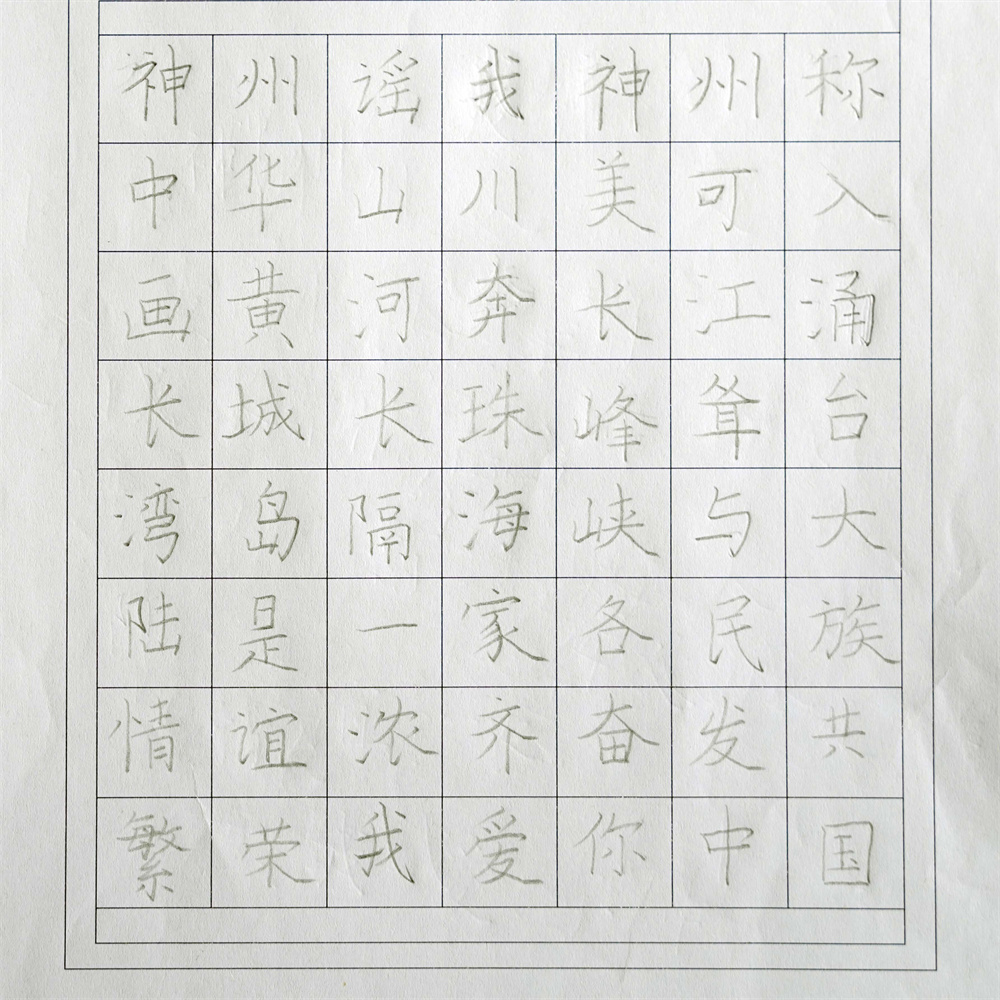 神州谣我神州称
中华山川美可入
画黄河奔长江涌
长城长珠峰耸台
湾岛隔海峡与大
陆是一家各民族
情谊浓齐奋发共
繁荣我爱你中国